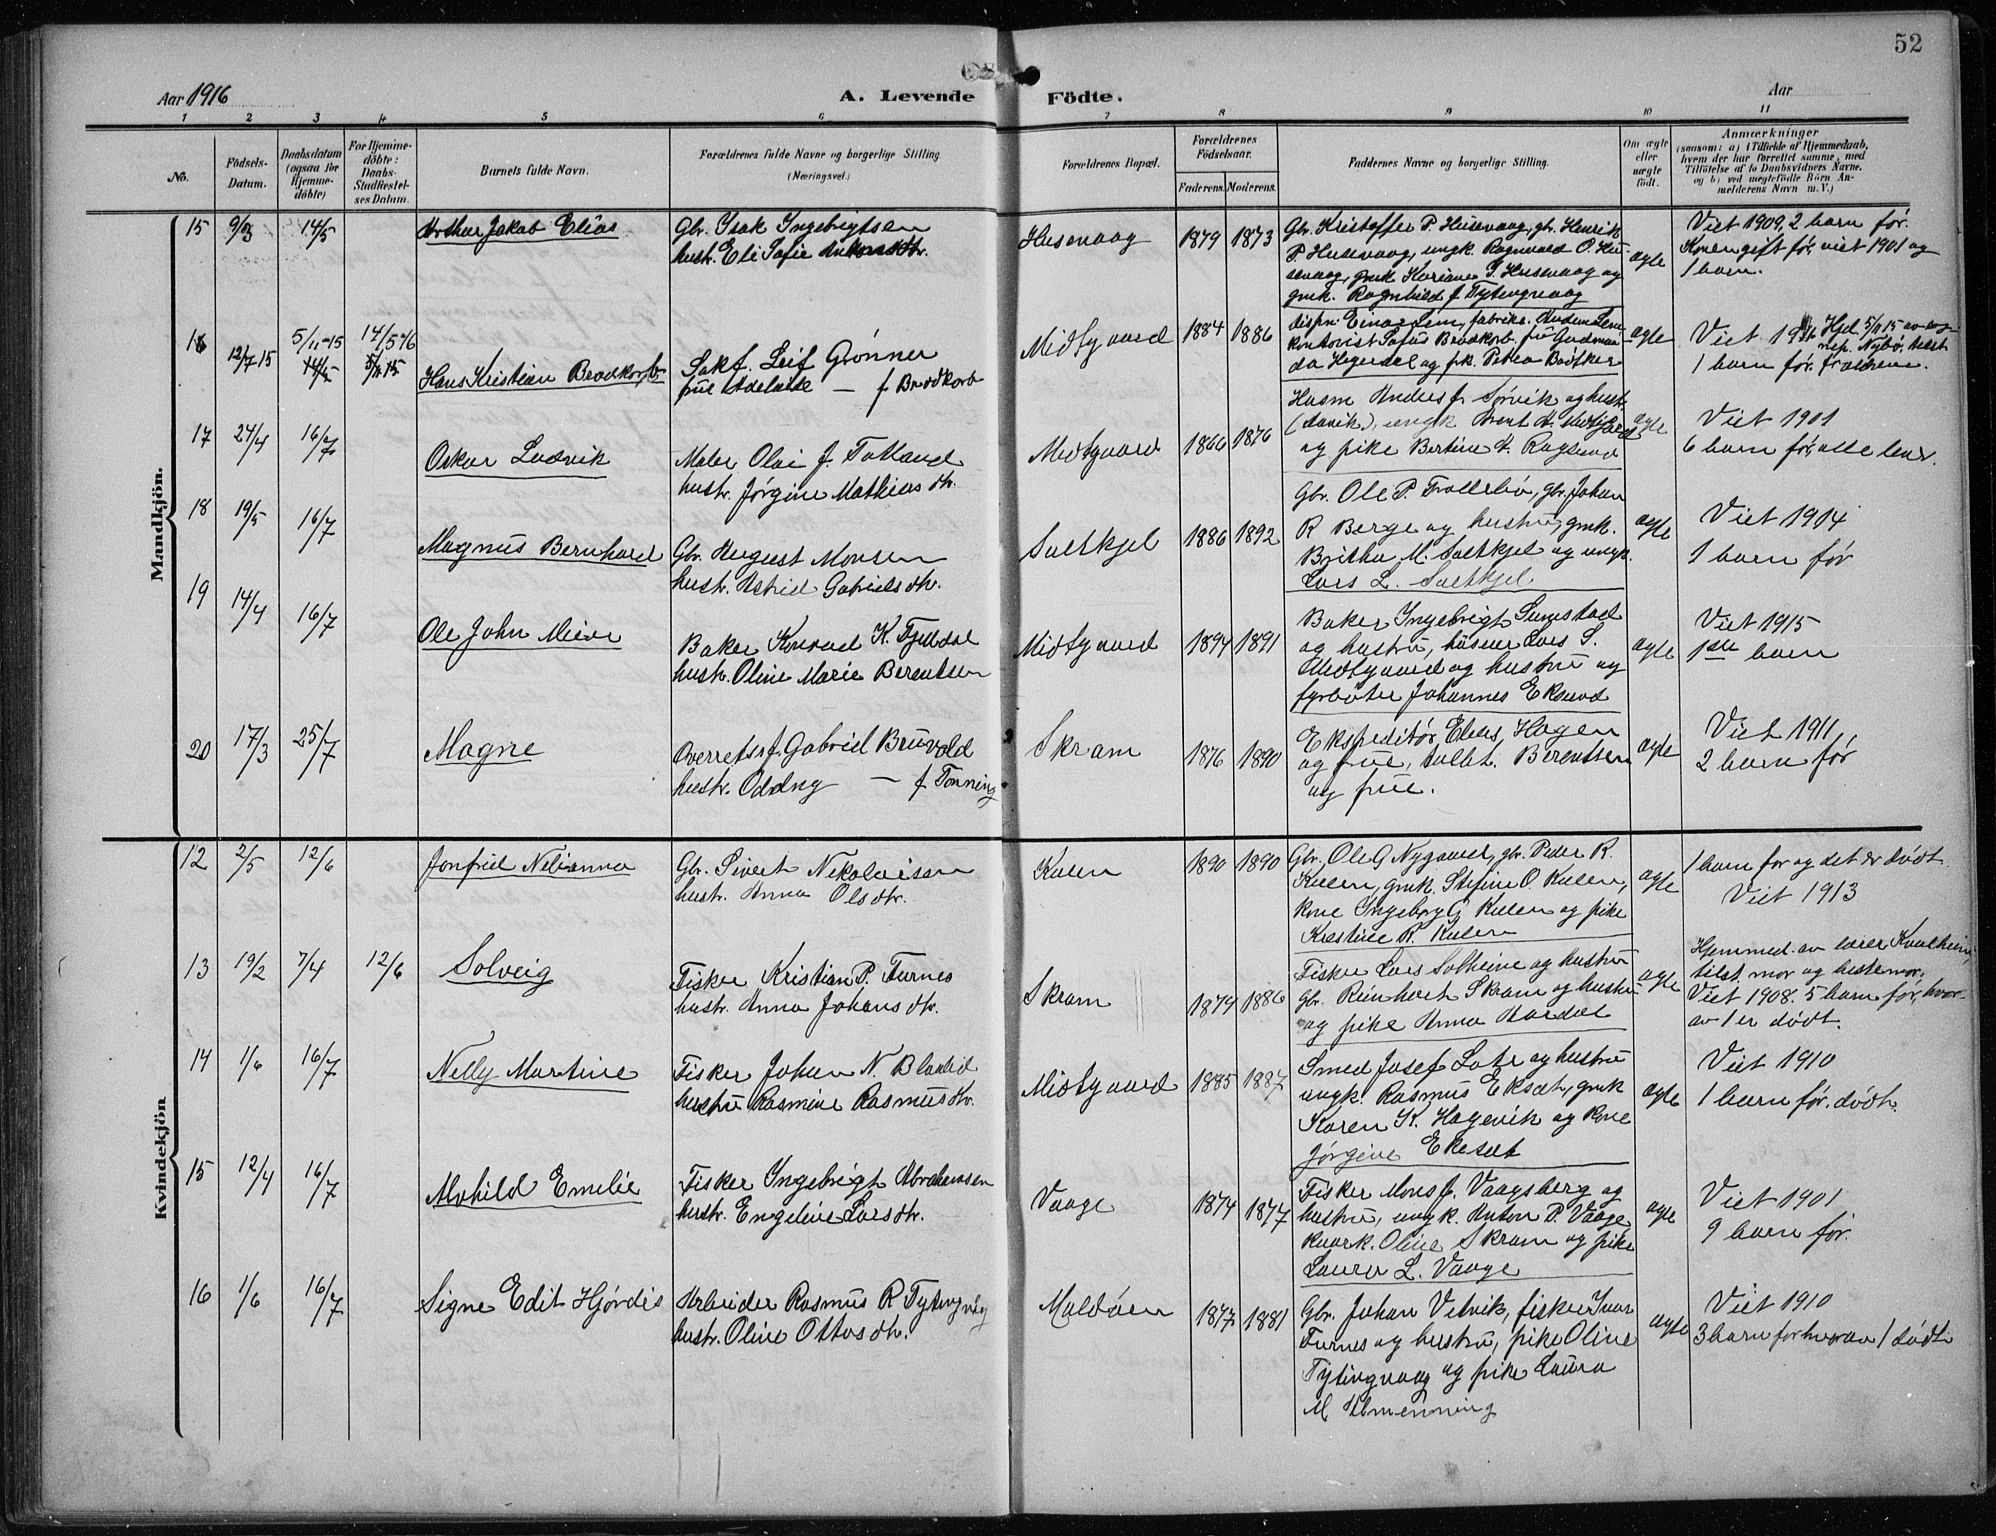 52
Aar 1916
A. Levende Födte.
Aar
1 2 3 4 5 6 7 8 9 10 11
No.
Födsels-Datum.
Daabsdatum (ogsaa for Hjemmedöbte)
For Hjemmedöbte: Daabs-Stadfæstelses Datum.
Barnets fulde Navn.
Forældrenes fulde Navne og borgerlige Stilling
(Næringsvei.)
Forældrenes Bopæl.
Forældrenes Födselsaar.
Faderens. Moderens.
Faddernes Navne og borgerlige Stilling.
Om ægte eller uægte födt.
Anmærkninger
(saasom: a) i Tilfælde af Hjemmedaab, hvem der har forrettet samme, med Tilföielse af to Daabsvidners Navne, og b) ved uægtefödte Börn Anmelderens Navn m. V.)
Mandkjön.
15 9/3 14/5 Arthur Jakob Elias
Gbr. Isak Ingebrigtsen
hustr. Eli Sofie Antonsdtr.
Husevaag 1879 1873
Gbr. Kristoffer P. Husevaag, gbr. Henrik
P. Husevaag, ungk. Ragnvald O. Husevaag, gmk. Karianne S. Husevaag og
gmk. Ragnhild f. Tytingvaag
ægte
Viet 1909, 2 barn før.
Konen gift før, viet 1901 og
1 barn.
16 12/7 15 5/11-15 14/5 16
Hans Kristian Brodkorb
Sakf. Leif Grønner
frue Adelaide — f. Brodkorb
Midtgaard 1884 1886
disp. Einar Lem, fabrikr.
kontorist Sofus Brodkorb, fru Gudrun
og frk. Petra Bødtker
ægte
Viet
1 barn før.
17 24/4 16/7 Oskar Ludvik
Maler Olai J. Totland
hustr. Jørgine Mathiasdtr.
Midtgaard 1866 1876
Husm Anders J. Sørvik og hustr.
og pike Bertine A. Raysund
ægte
Viet 1901
6 barn før, alle lever.
18 19/5 16/7 Magnus Bernhard
Gbr. August Monsen
hustr. Astrid Gabrielsdtr.
Saltkjel 1886 1892
Gbr. Ole P. Trollebø, gbr. Johan
R Berge og hustru, gmk.
Brithe M. Saltkjel og ungk.
Lars L. Saltkjel
ægte
Viet 1914
1 barn før
19 14/4 16/7 Ole John Meier
Baker Konrad K. Fjelldal
hustr. Oline Marie Berentsen
Midtgaard 1894 1891
Baker Ingebrigt Sunnstad
og hustru, husmr Lars S.
Midtgaard og hustru og
fyrbøter Johannes Eksund
ægte
Viet 1915
1ste barn
20 17/3 25/7 Magne
Overretsf. Gabriel Bruvold
hustr. Oddny — f. Tonning
Skram 1876 1890
Ekspeditør Elias Hagen
og frue, tolbt. Berentsen
og frue.
ægte
Viet 1911
2 barn før
Kvindekjön
12 2/5 12/6 Jonfrid Nelianna
Gbr. Sivert Nikolaisen
hustr. Anna Olsdtr.
Kulen 1890 1890
Gbr. Ole G Nygaard, gbr. Peder R.
Kulen, gmk. Stefine O. Kulen,
kone Ingeborg G Kulen og pike
Kristine R. Kulen
ægte
1 barn før og det er dødt.
Viet 1913
13 19/2 7/4 12/6 Solveig
Fisker Kristian P. Furnes
hustr. Anna Johansdtr.
Skram 1879 1886
Fisker Lars Solheim og hustru
Gbr. Reinhart Skram og hustru
og pike Anna Aardal
ægte
Hjemmed. av lærer Kvalheim,
tilst. mor og bestemor.
Viet 1908. 5 barn før, hvorav 1 er dødt.
14 1/6 16/7 Nelly Martine
Fisker Johan N. Blaalid
hustru Rasmine Rasmusdtr.
Midtgaard 1885 1887
Smed Josef Lote og hustru
ungk. Rasmus Eksæt, gmk
Karen K. Hagevik og kone
Jørgine Ekesæt
ægte
Viet 1910
1 barn før. dødt.
15 12/4 16/7 Alvhild Emelie
Fisker Ingebrigt Abrahamsen
hustr. Engeline Larsdtr.
Vaage 1874 1877
Fisker Mons J. Vaagsberg og
hustru, ungk. Anton P. Vaage,
Oline Skram og pike
Laura L. Vaage
ægte
Viet 1901
9 barn før.
16 1/6 16/7 Signe Edit Hjørdis
Arbeider Rasmus R Tytingvåg
hustr. Oline Ottosdtr.
Maldøen 1877 1881
Gbr. Johan Vetvik, fisker Ivar
Furnes og hustru, pike Oline
Tytingvaag og pike Laura
M Almenning
ægte
Viet 1910
3 barn før hvorav 1 dødt